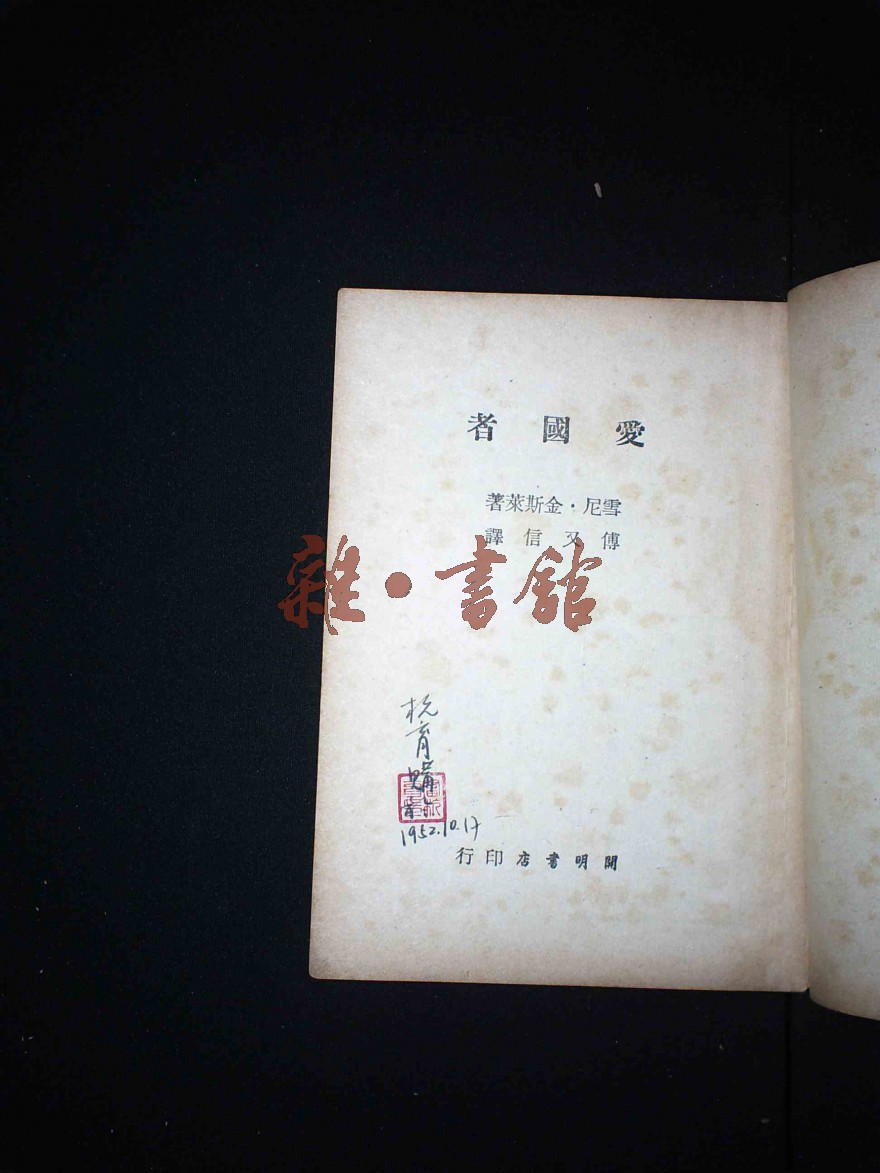 愛國者
雪尼·金斯萊著
傅又信譯
雜·書館
杭育
1952.10.17
開明書店印行